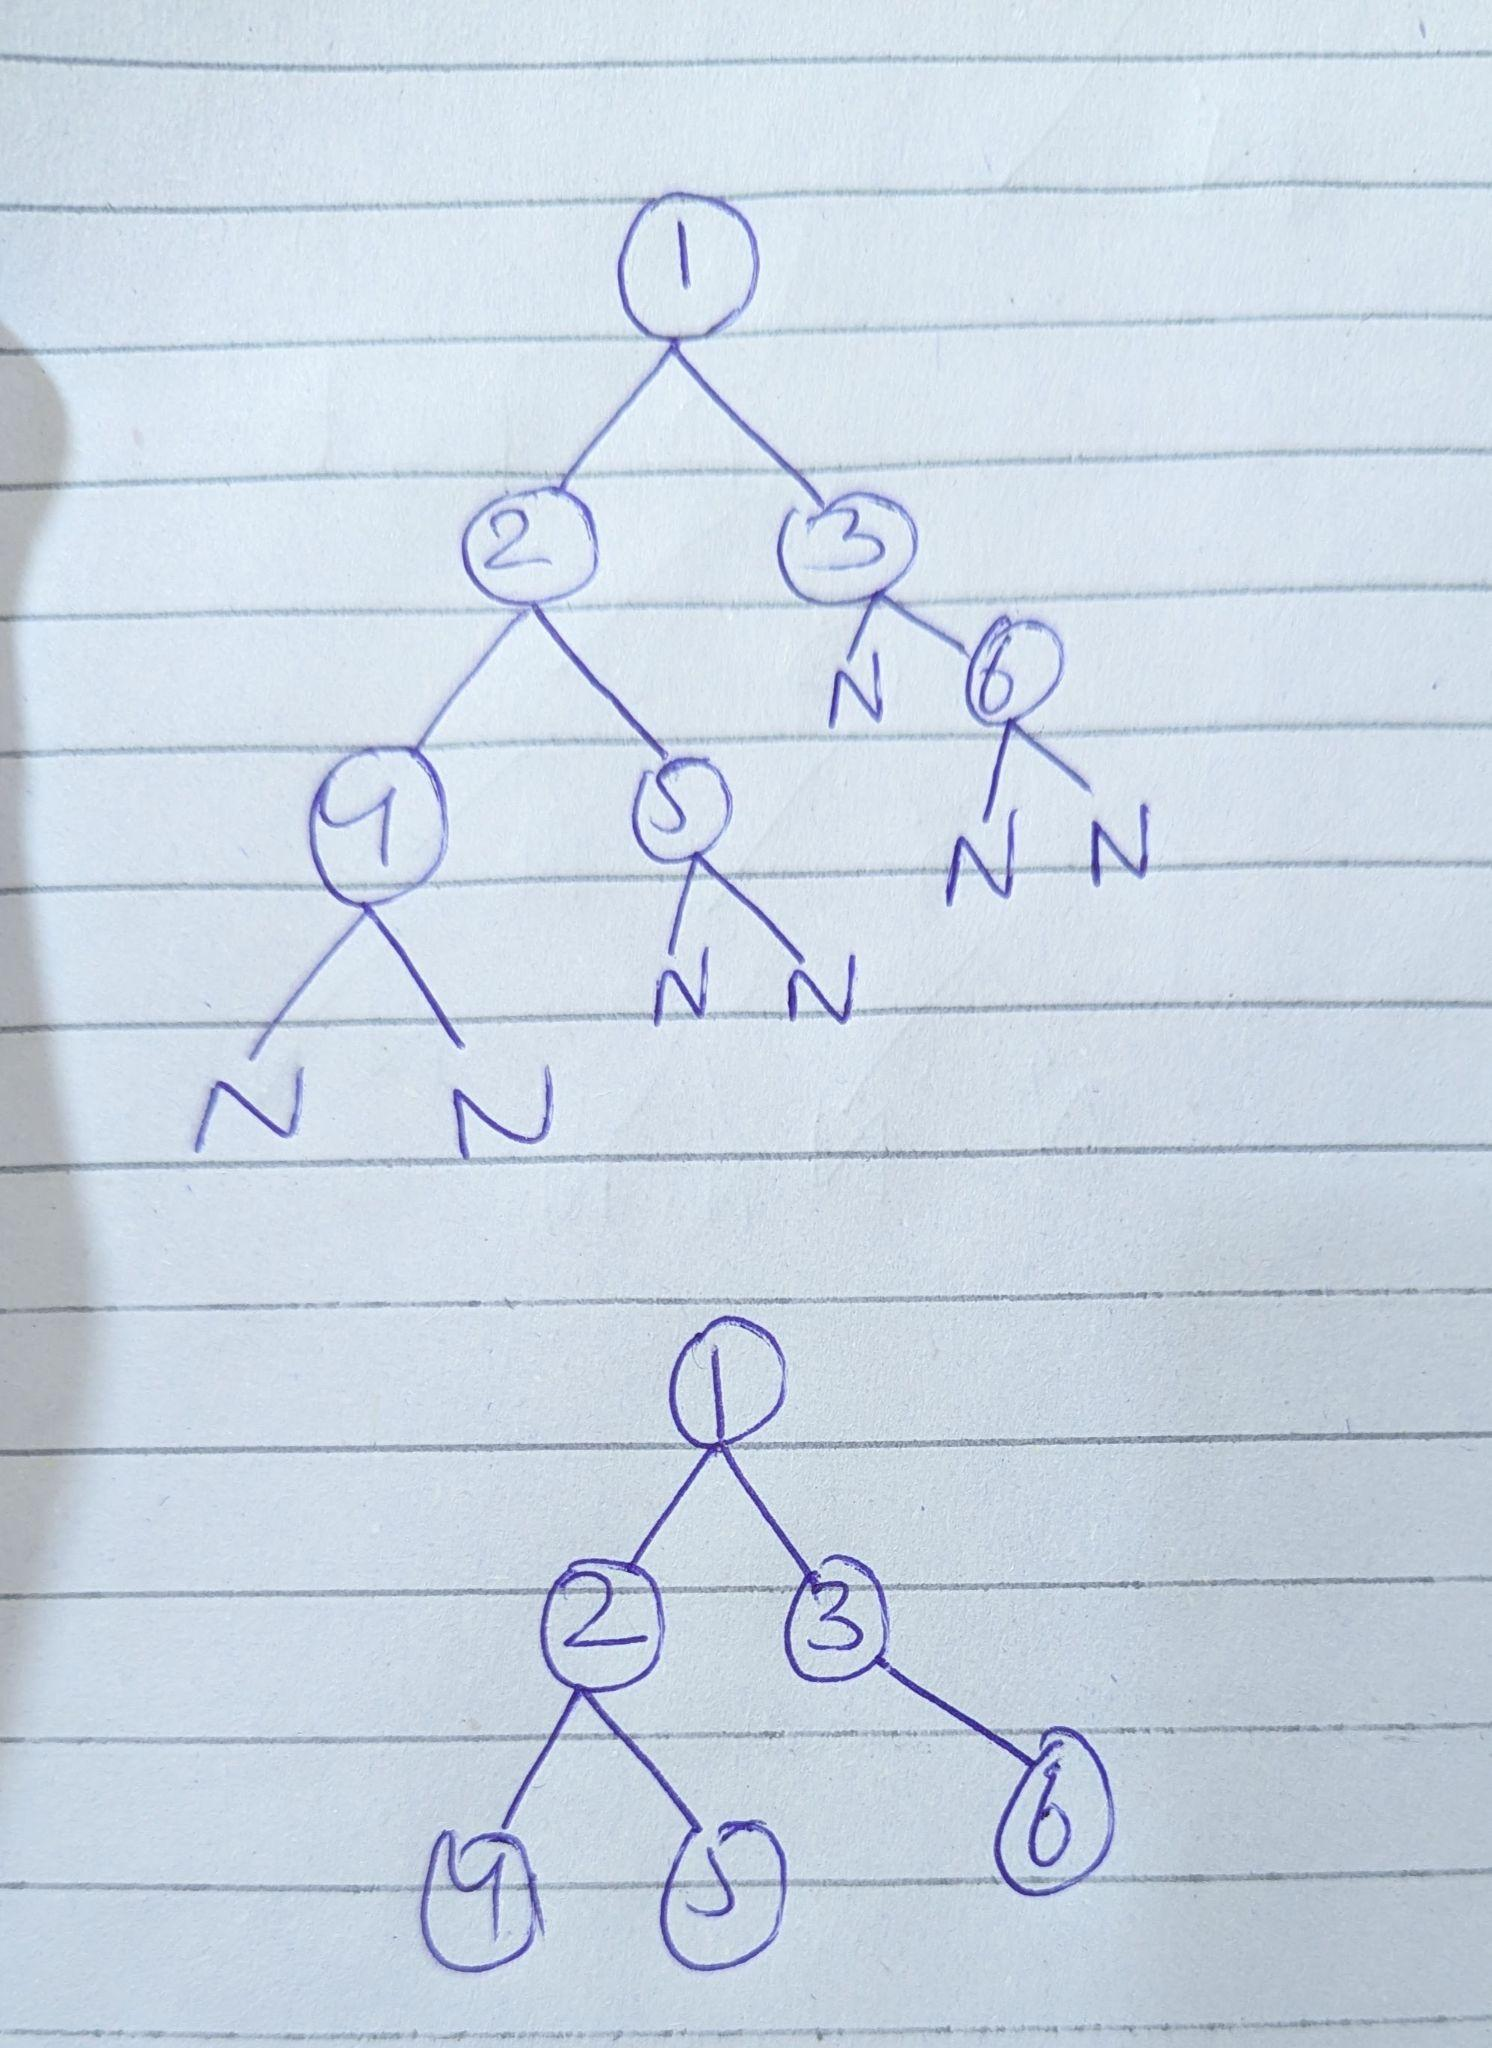 1
2 3
N 6
4 5
N N
N N
N N
1
2 3
6
4 5